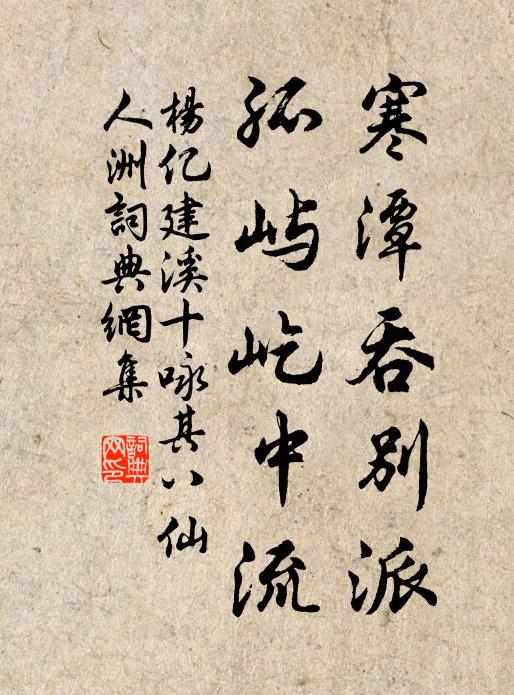 寒潭吞别派
孤屿屹中流
楊亿建溪十咏其八仙
人洲詞典網集
詞典网印